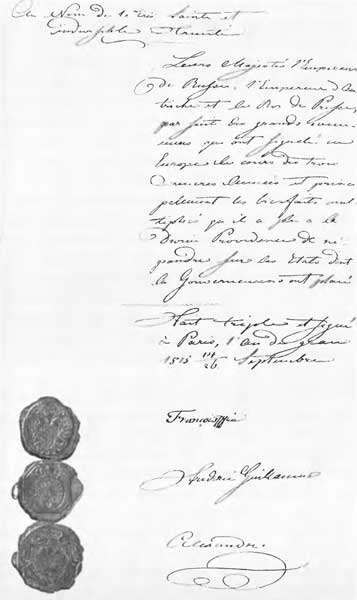 Au Nom de la très Sainte et
indivisible Trinité
Leurs Majestés l'Empereur
de Russie, l'Empereur d'Au
triche et le Roi de Prusse,
par suite des grands évène
mens qui ont signalé en
Europe le cours des trois
dernières Années et princi
palement des bienfaits mul
tipliés qu'il a plu à la
Divine Providence de ré
pandre sur les Etats dont
les Gouvernemens ont placé
Fait triple et signé
à Paris, l'an de grace
1815 14/26 Septembre
François
Frederic Guillaume
Alexandre.